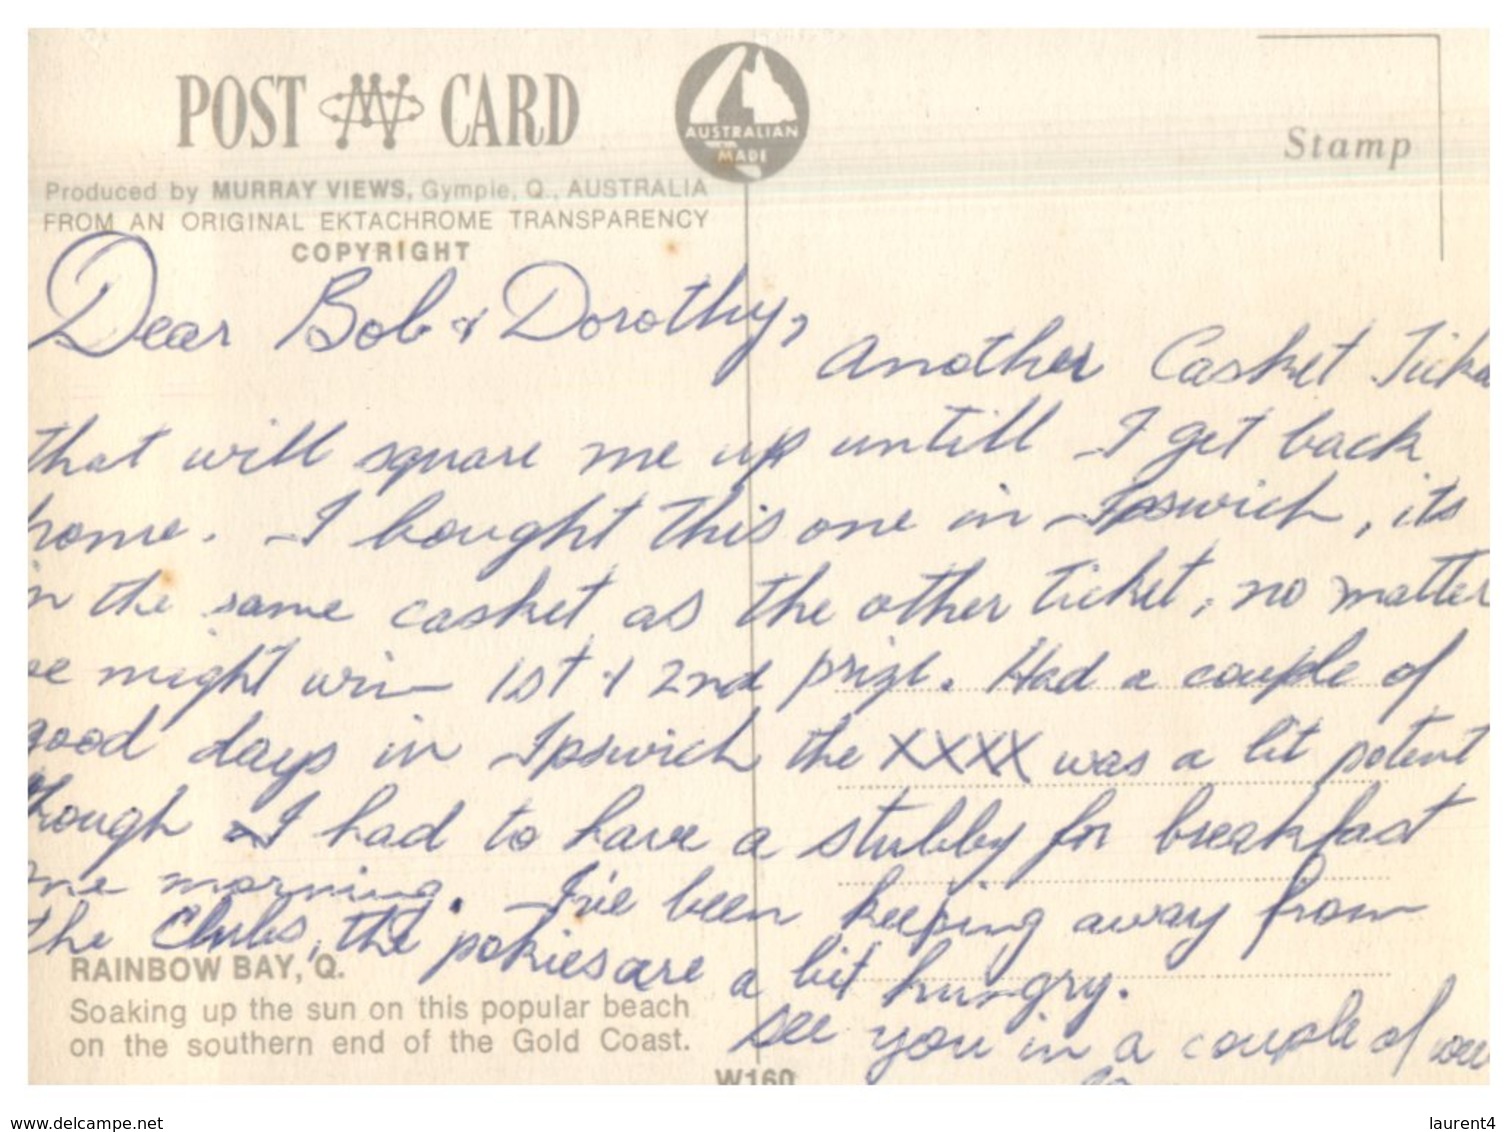 POST CARD
AUSTRALIAN
MADE
Stamp
Produced by MURRAY VIEWS, Gympie, Q., AUSTRALIA
FROM AN ORIGINAL EKTACHROME TRANSPARENCY
COPYRIGHT
Dear Bob & Dorothy,
Another Casket Ticke
that will square me up untill I get back
home. I bought this one in Ipswich, its
in the same casket as the other ticket, no matter
we might win 1st & 2nd prize. Had a couple of
good days in Ipswich the XXXX was a bit potent
though I had to have a stubby for breakfast
one morning. I've been keeping away from
the Clubs, the pokies are a bit hungry.
see you in a couple of wee
RAINBOW BAY, Q.
Soaking up the sun on this popular beach
on the southern end of the Gold Coast.
W160
www.delcampe.net
laurent4